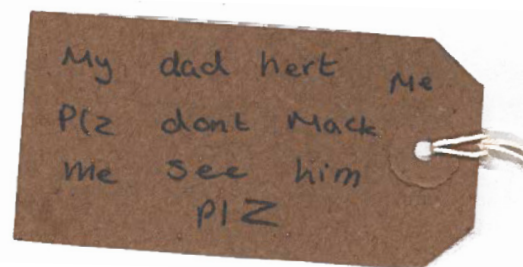 My dad hert Me
Plz dont Mack
Me see him
plz